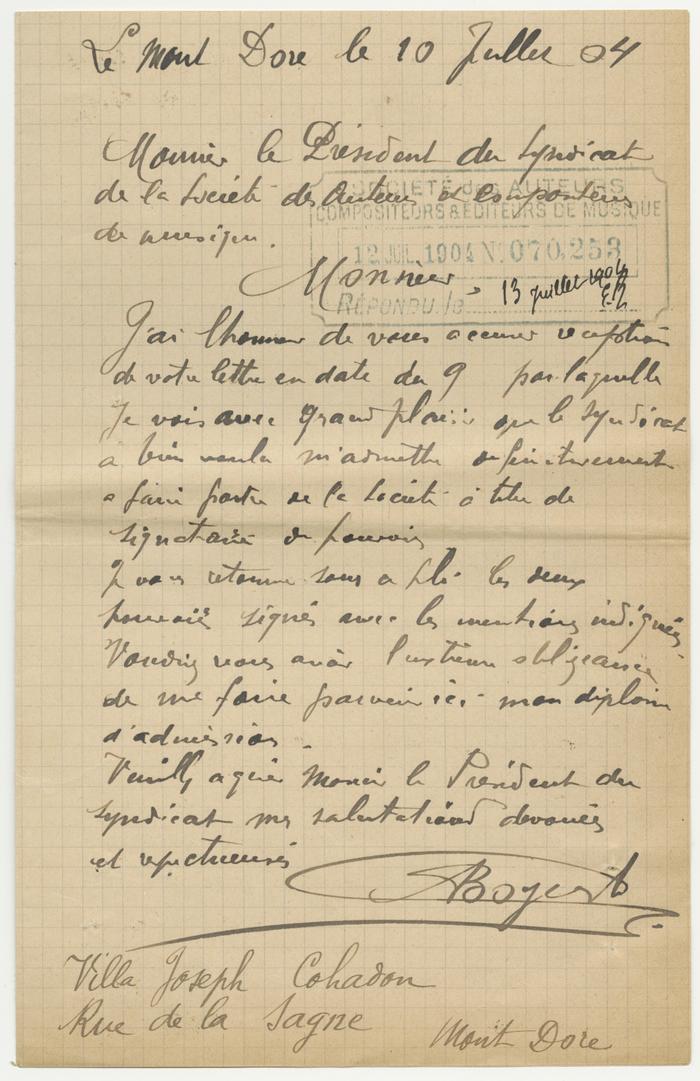 Le Mont Dore le 10 Juillet 04
Monsieur le Président du Syndicat
de la Société des Auteurs et Compositeurs
de musique.
SOCIÉTÉ des AUTEURS
COMPOSITEURS & EDITEURS DE MUSIQUE
12 JUIL. 1904 N. 070,253
RÉPONDU le 13 juillet 1904
Monsieur,
J'ai l'honneur de vous accuser réception
de votre lettre en date du 9 par laquelle
Je vois avec grand plaisir que le Syndicat
a bien voulu m'admettre définitivement
a faire partie de la Société à titre de
signataire de pouvoirs
Je vous retourne sous ce pli les deux
pouvoirs signés avec les mentions indiquées.
Voudriez vous avoir l'extrême obligeance
de me faire parvenir ici mon diplome
d'admission.
Veuillez agréer Monsieur le Président du
Syndicat mes salutations dévouées
et respectueuses
Villa Joseph Cohadon
Rue de la Sagne
Mont Dore